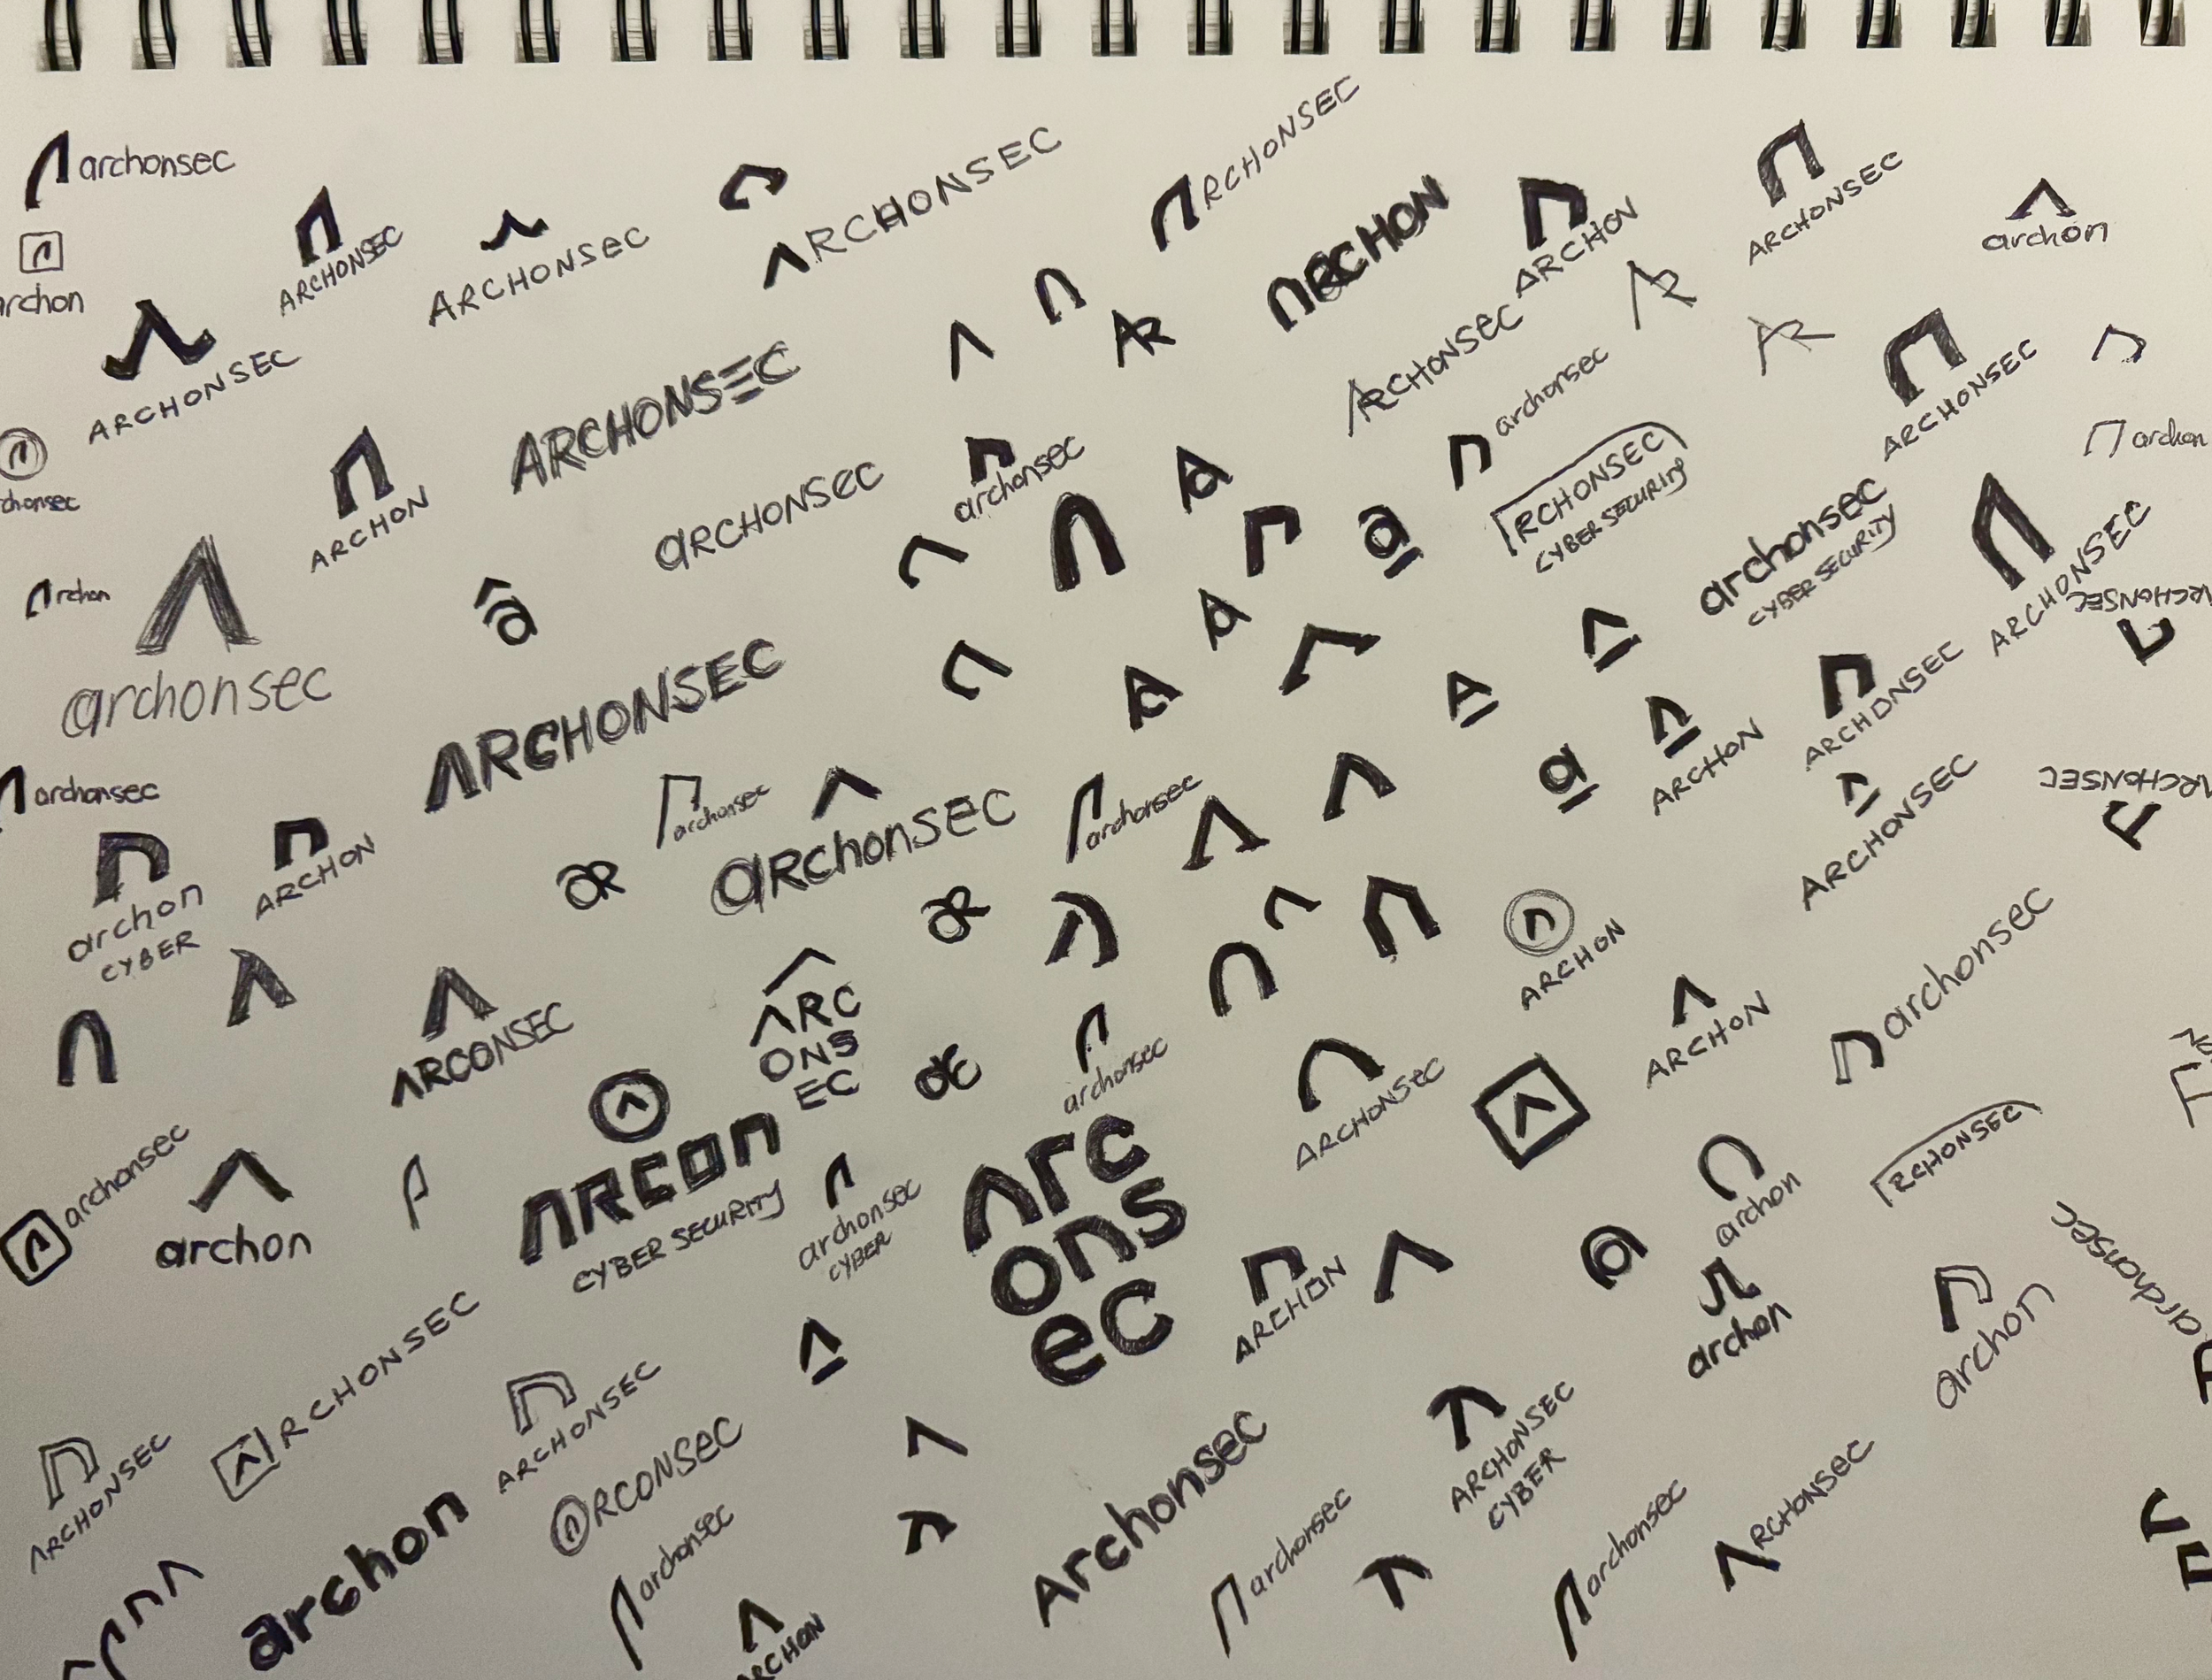 archonsec
archon
ARCHONSEC
ARCHONSEC
ARCHONSEC
ARCHONSEC
RCHONSEC
ARCHON
ARCHON
ARCHONSEC
archon
ARCHONSEC
archonsec
ARCHONSEC
archonsec
RCHONSEC
CYBER SECURITY
ARCHONSEC
archon
chonsec
ARCHON
ARCHONSEC
archonsec
archonsec
CYBER SECURITY
ARCHONSEC
ARCHONSEC
rchon
archonsec
â
a
ARCHONSEC
ARCHON
ARCHONSEC
ARCHONSEC
ARCHONSEC
archonsec
archon
CYBER
ARCHON
archonsec
archonsec
archonsec
a
ARCHON
ARCHON
archonsec
ARCONSEC
ARC
ONS
EC
archonsec
ARCHONSEC
RCHONSEC
archonsec
archon
ARCON
CYBER SECURITY
archonsec
CYBER
arc
ons
ec
ARCHON
a
archon
archon
archon
archonsec
RCHONSEC
ARCHONSEC
ARCHONSEC
RCONSEC
archon
archonsec
ARCHON
Archonsec
archonsec
ARCHONSEC
CYBER
archonsec
RCHONSEC